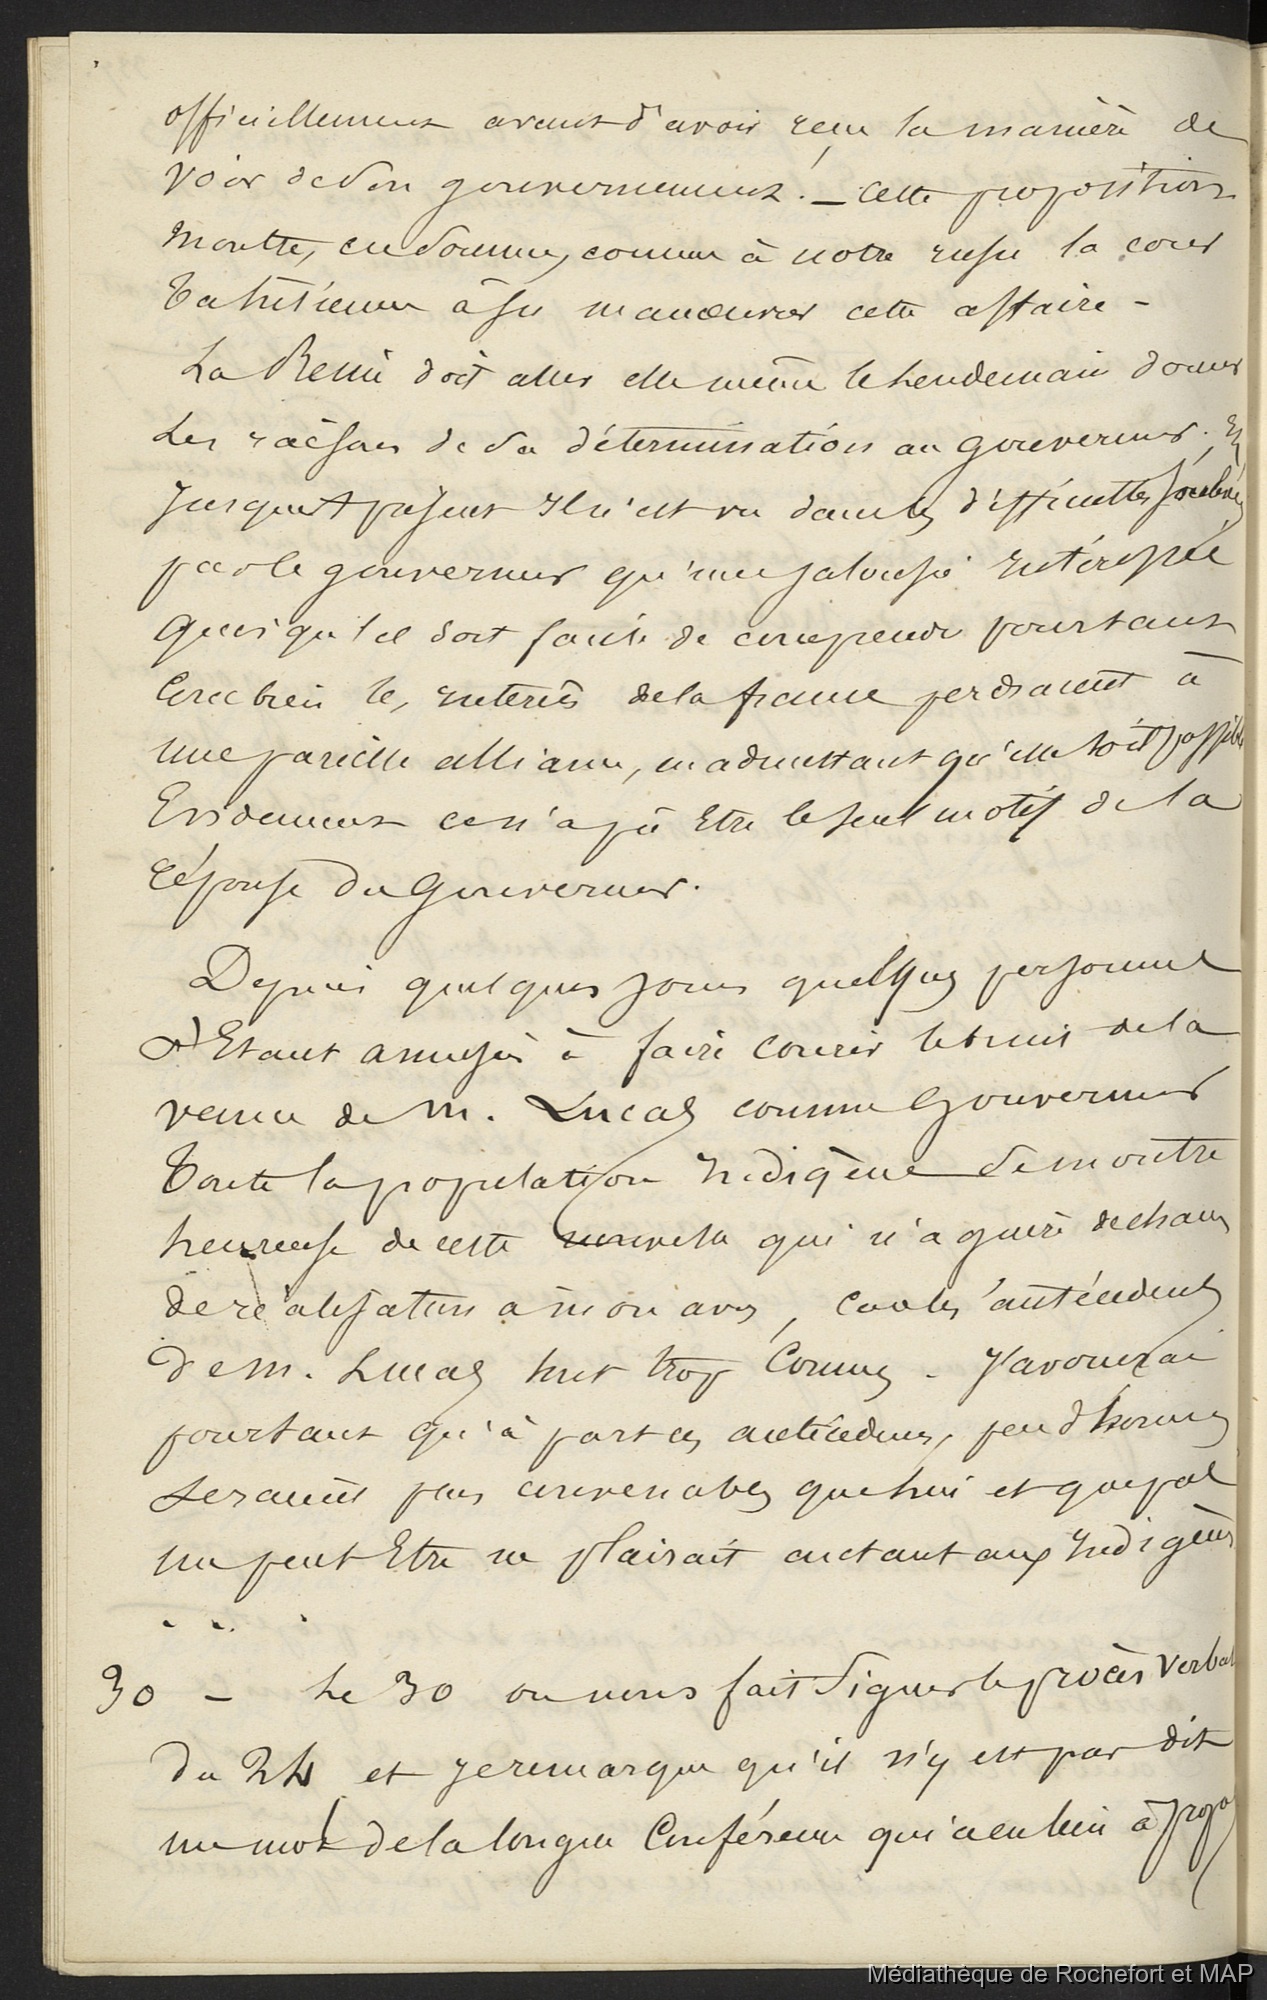 officiellement avant d'avoir reçu la manière de
voir de son gouvernement! – cette proposition
montre, en somme, comme à notre refus la cour
Tahitienne a su manœuvrer cette affaire –
La Reine doit aller elle même le lendemain donner
Les raisons de sa détermination au gouverneur. Et
Jusqu'A présent Il n'est vu dans les difficultés soulevées
par le gouverneur qu'une jalousie
Quoiqu'il soit facile de comprendre pourtant
Combien les interets de la france perdraient à
une pareille alliance, en admettant qu'elle soit possible
Evidemment ce n'a pu Etre le seul motif de la
réponse du Gouverneur.
Depuis quelques jours quelques personnes
Etant amusées à faire courir le bruit de la
venue de M. Lucas comme Gouverneur
Toute la population Indigène se montre
heureuse de cette nouvelle qui n'a guère de chance
de réalisation à mon avis, car les antécédents
de M. Lucas sont trop connus. J'avouerai
pourtant qu'à part ces antécédents, peu d'hommes
Seraient plus convenables que lui et que pas
un peut Etre ne plairait autant aux Indigènes
. . . .
30 – Le 30 on nous fait Signer le procès Verbal
du 24 et je remarque qu'il n'y est pas dit
un mot de la longue Conférence qui a eu lieu à propos
Médiathèque de Rochefort et MAP